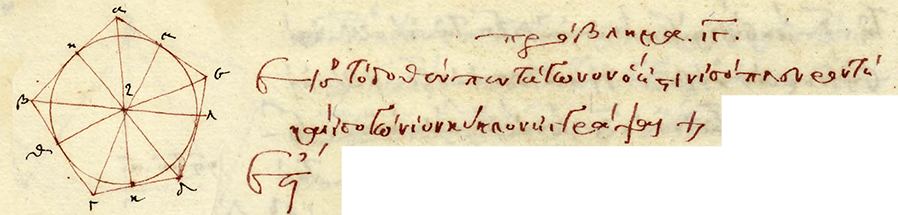 α
η
ε
β
ζ
λ
θ
γ
κ
δ
πρόβλημα. ιγ.
Εἰς τὸ δοθὲν πεντάγωνον ὅ ἐστιν ἰσόπλευρόν τε
καὶ ἰσογώνιον κύκλον ἐγγράψαι